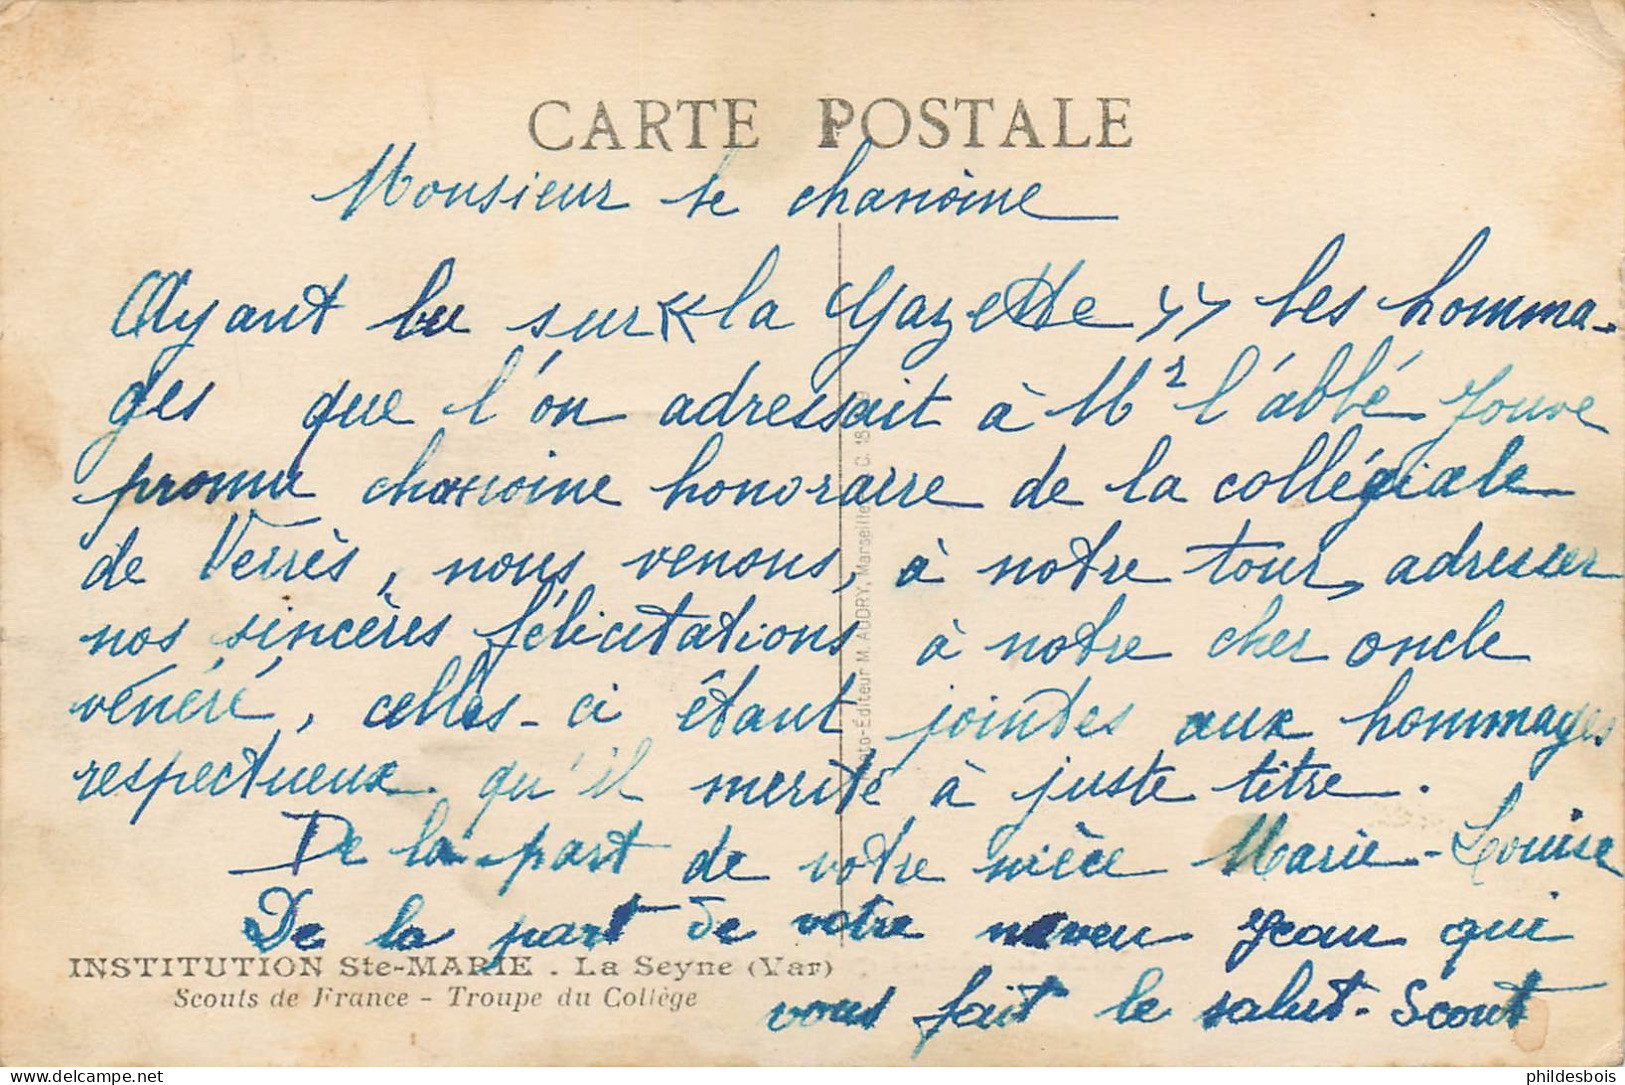 CARTE POSTALE
Monsieur le chanoine
Ayant lu sur « la Gazette » les homma-
ges que l'on adressait à Mr l'abbé Jouve
promu chanoine honoraire de la collégiale
de Verrès, nous venons, à notre tour, adresser
nos sincères félicitations à notre cher oncle
vénéré, celles-ci étant jointes aux hommages
respectueux qu'il mérite à juste titre.
De la part de votre nièce Marie-Louise
De la part de votre neveu Jean qui
vous fait le salut-Scout
INSTITUTION Ste-MARIE . La Seyne (Var)
Scouts de France - Troupe du Collège
Photo-Éditeur M. AUDRY, Marseille C. 18
phildesbois